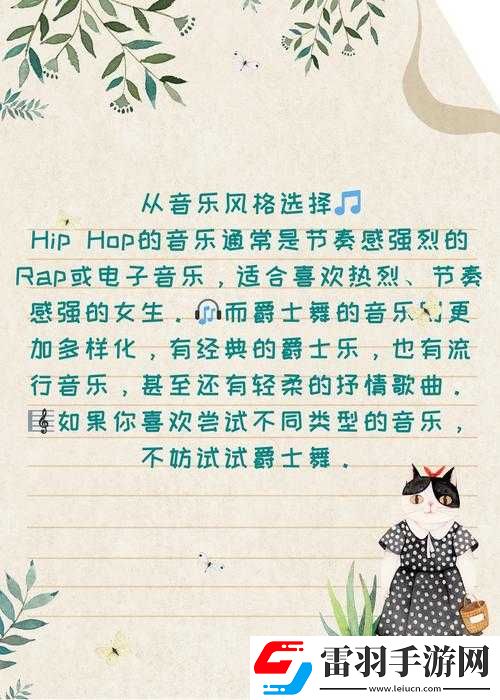 从音乐风格选择🎵
Hip Hop的音乐通常是节奏感强烈的
Rap或电子音乐，适合喜欢热烈、节奏
感强的女生．🎧而爵士舞的音乐则更
加多样化，有经典的爵士乐，也有流
行音乐，甚至还有轻柔的抒情歌曲．
🎼如果你喜欢尝试不同类型的音乐，
不妨试试爵士舞．
雷羽手游网
www.leiucn.com